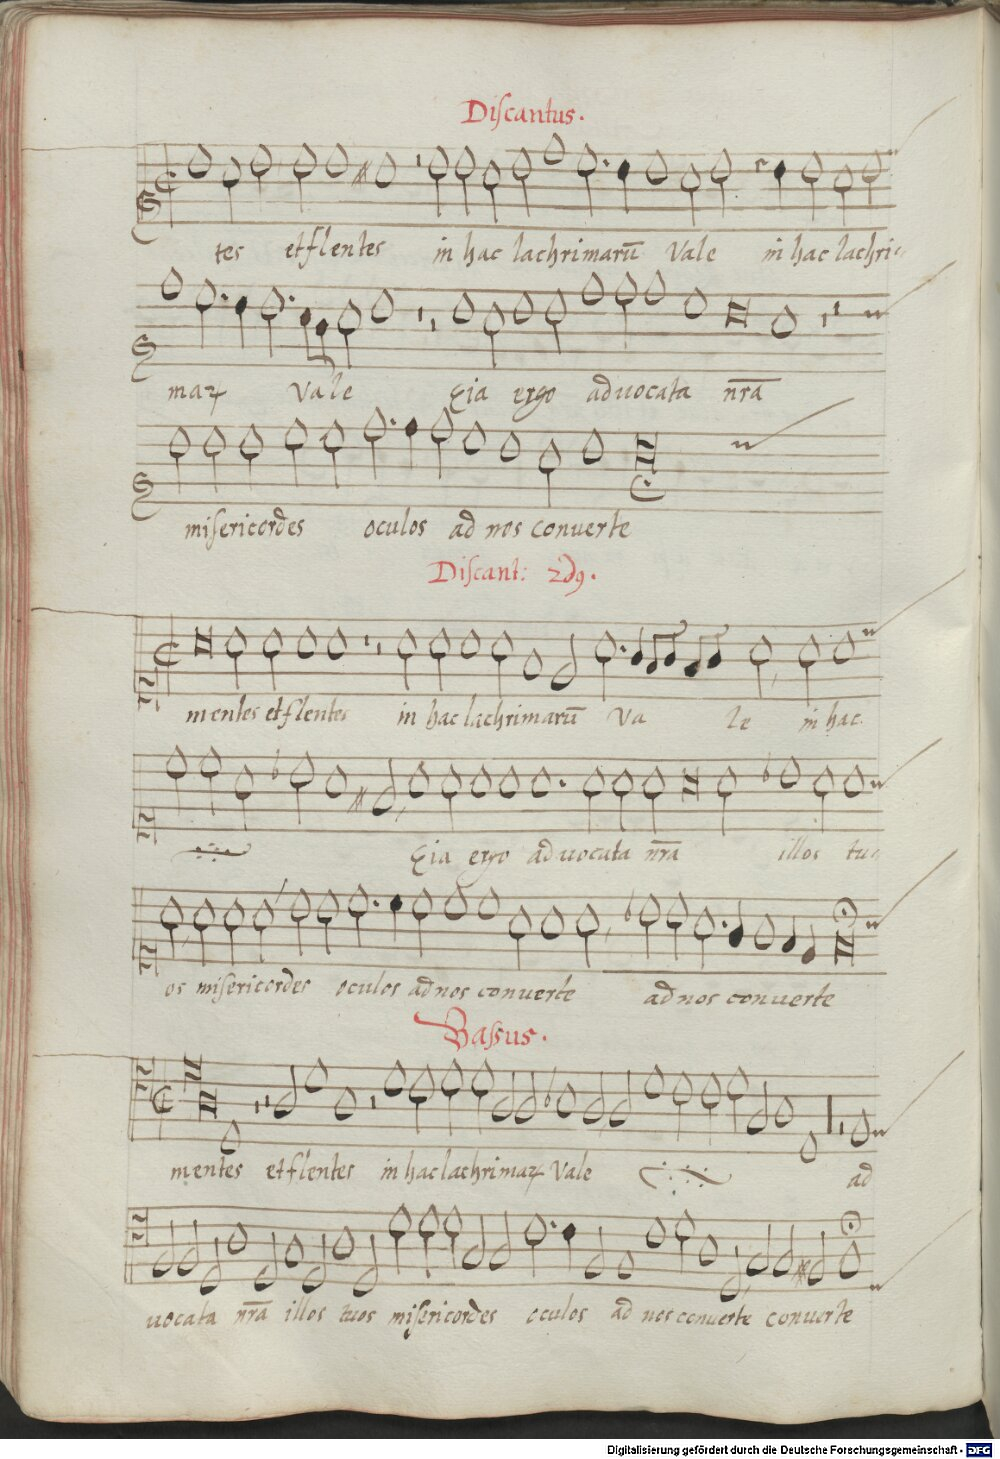 Discantus.
tes et flentes in hac lachrimarū Vale in hac lachri-
maꝝ Vale Eia ergo aduocata nr̄a
misericordes oculos ad nos conuerte
Discant: 2dꝰ.
mentes et flentes in hac lachrimarū Va le in hac
Eia ergo aduocata nr̄a illos tu
os misericordes oculos ad nos conuerte ad nos conuerte
Bassus.
mentes et flentes in hac lachrimaꝝ Vale ad
uocata nr̄a illos tuos misericordes oculos ad nos conuerte conuerte
Digitalisierung gefördert durch die Deutsche Forschungsgemeinschaft - DFG